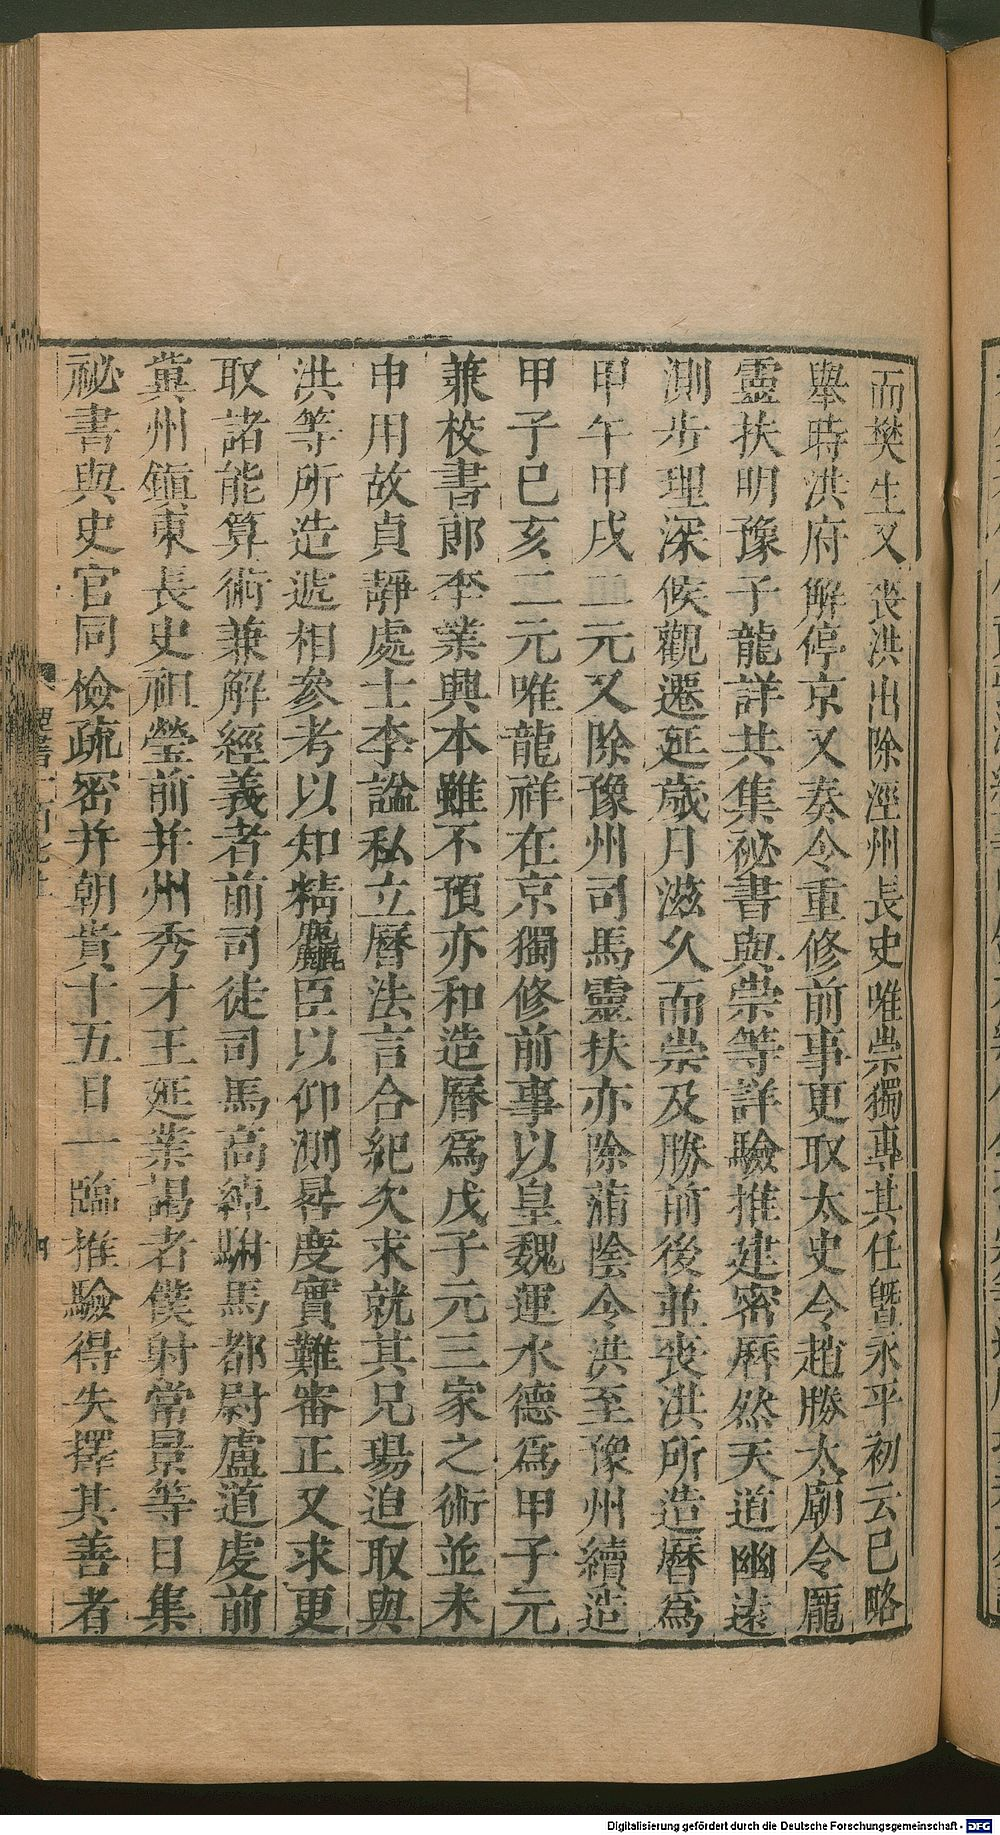 而樊生又喪洪出除涇州長史唯崇獨專其任曁永平初云已略
舉時洪府解停京又奏令重修前事更取太史令趙勝太廟令龐
靈扶明豫子龍詳共集祕書與崇等詳驗推建密曆然天道幽遠
測步理深候觀遷延歲月滋久而崇及勝前後並喪洪所造曆爲
甲午甲戌二元又除豫州司馬靈扶亦除蒲陰令洪至豫州續造
甲子己亥二元唯龍祥在京獨修前事以皇魏運水德爲甲子元
兼校書郎李業興本雖不預亦和造曆爲戊子元三家之術並未
申用故貞靜處士李謐私立曆法言合紀次求就其兄瑒追取與
洪等所造遞相參考以知精麤臣以仰測晷度實難審正又求更
取諸能算術兼解經義者前司徒司馬高綽駙馬都尉盧道虔前
冀州鎭東長史祖瑩前并州秀才王延業謁者僕射常景等日集
祕書與史官同檢疏密并朝貴十五日一臨推驗得失擇其善者
Digitalisierung gefördert durch die Deutsche Forschungsgemeinschaft - DFG